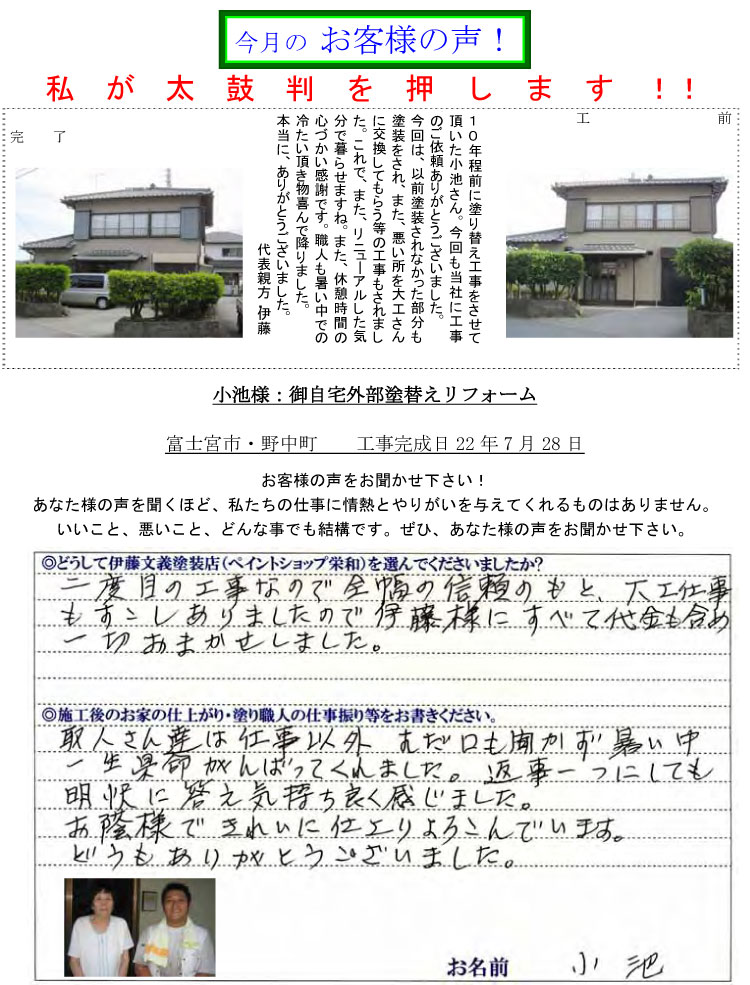 今月の お客様の声！
私が太鼓判を押します!!
工 前
完 了
１０年程前に塗り替え工事をさせて
頂いた小池さん。今回も当社に工事
のご依頼ありがとうございました。
今回は、以前塗装されなかった部分も
塗装をされ、また、悪い所を大工さん
に交換してもらう等の工事もされまし
た。これで、また、リニューアルした気
分で暮らせますね。また、休憩時間の
心づかい感謝です。職人も暑い中での
冷たい頂き物喜んで降りました。
本当に、ありがとうございました。
代表親方 伊藤
小池様：御自宅外部塗替えリフォーム
富士宮市・野中町 工事完成日22年7月28日
お客様の声をお聞かせ下さい！
あなた様の声を聞くほど、私たちの仕事に情熱とやりがいを与えてくれるものはありません。
いいこと、悪いこと、どんな事でも結構です。ぜひ、あなた様の声をお聞かせ下さい。
◎どうして伊藤文義塗装店（ペイントショップ栄和）を選んでくださいましたか？
二度目の工事なので全幅の信頼のもと、大工仕事
もすこしありましたので伊藤様にすべて代金も含め
一切おまかせしました。
◎施工後のお家の仕上がり・塗り職人の仕事振り等をお書きください。
取人さん達は仕事以外 むだ口も聞かず暑い中
一生県命がんばってくれました。返事一つにしても
明快に答え気持ち良く感じました。
お蔭様できれいに仕上りよろこんでいます。
どうもありがとうございました。
お名前 小池